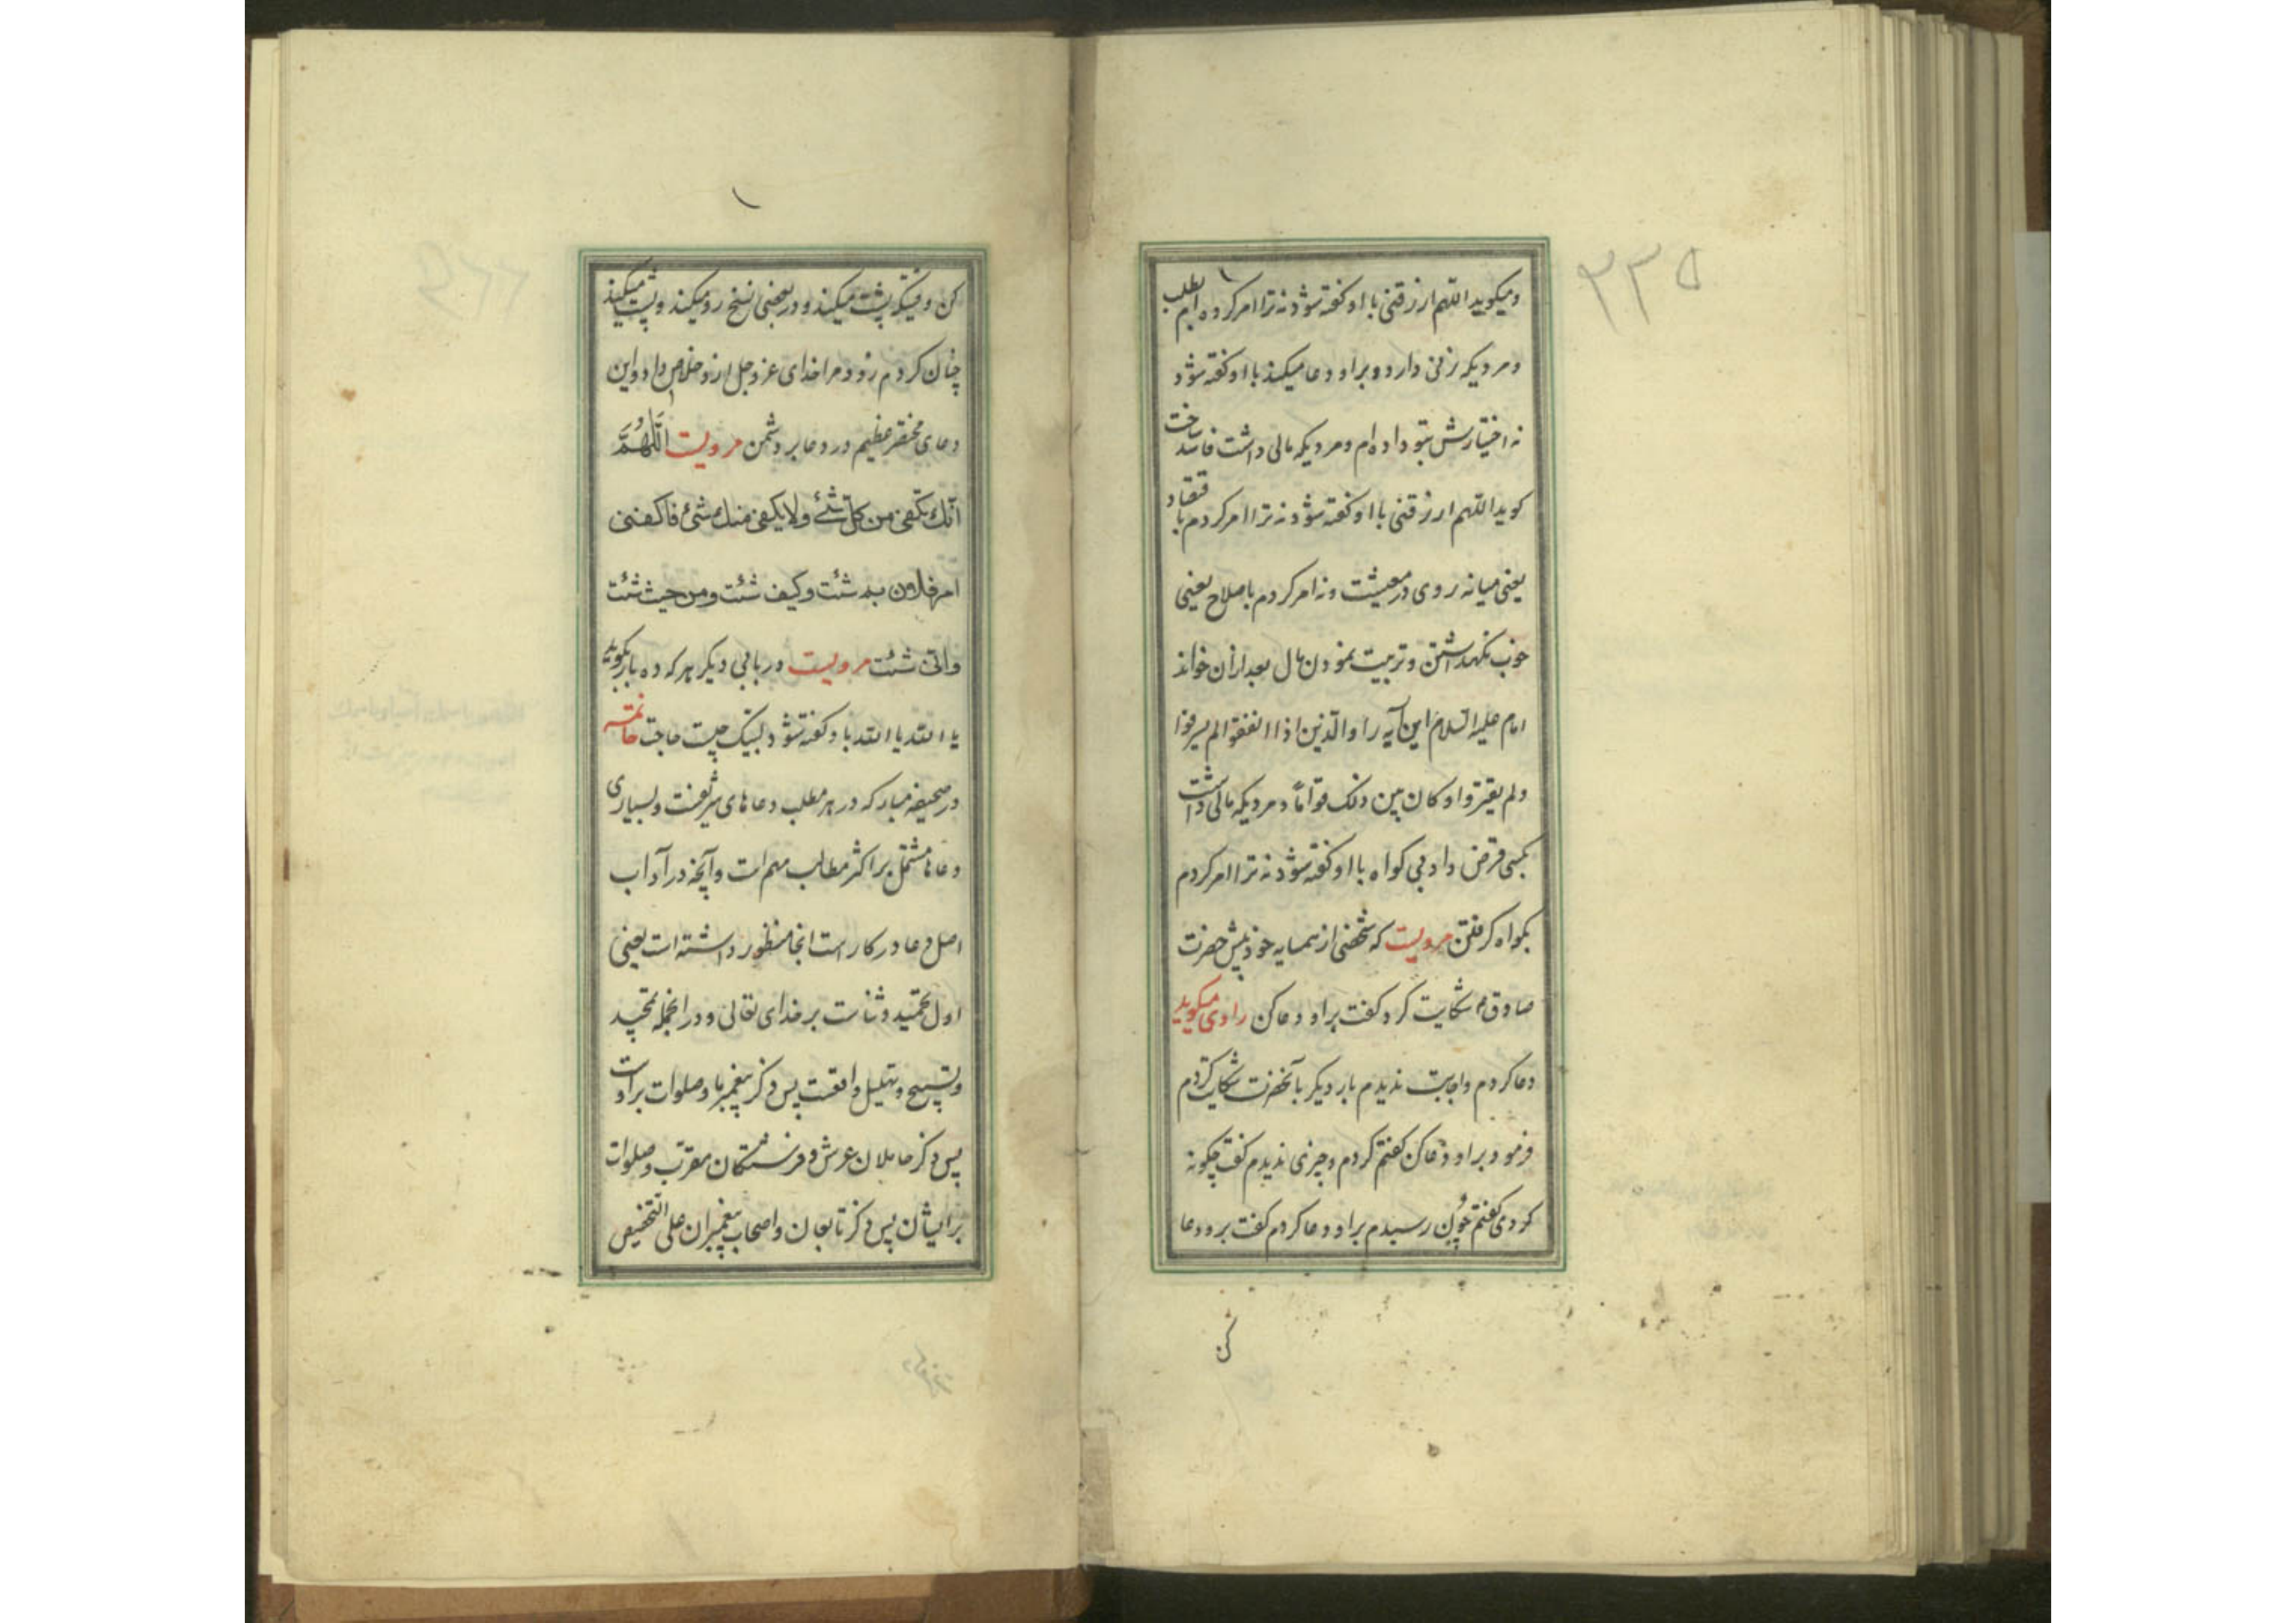 ۲۳۵
و میکوید اللهم ارزقنی با او کفته شود نه ترا امر کرده ام بطلب
و مردیکه زنی دارد و بر او دعا میکند با او کفته شود
نه اختیارش بتو داده ام و مردیکه مالی داشت فاسد ساخت
کوید اللهم ارزقنی با او کفته شود نه ترا امر کردم باقتصاد
یعنی میانه روی در معیشت و نه امر کردم باصلاح یعنی
خوب نکهداشتن و تربیت نمودن مال بعد از آن خواند
امام علیه السلام این آیه را و الذین اذا انفقوا لم یسرفوا
و لم یقتروا و کان بین ذلک قواماً و مردیکه مالی داشت
بکسی قرض داد بی کواه با او کفته شود نه ترا امر کردم
بکواه کرفتن مرویست که شخصی از همسایه خود پیش حضرت
صادق ع شکایت کرد کفت بر او دعا کن راوی میکوید
دعا کردم و اجابت ندیدم بار دیکر بآنحضرت شکایت کردم
فرمود بر او دعا کن کفتم کردم و چیزی ندیدم کفت چکونه
کردی کفتم چون رسیدم بر او دعا کردم کفت برو دعا
کن
کن وقتیکه پشت میکند و در بعضی نسخ رو میکند و پشت میکند
چنان کردم زود مرا خدای عز و جل ازو خلاص داد و این
دعای مختصر عظیم در دعا بر دشمن مرویست اَللّٰهُمَّ
انّك تكفی من كلّ شئ ولا یكفی منك شئ فاكفنی
امر فلان بم شئت وكیف شئت ومن حیث شئت
وانّی شئت مرویست در بابی دیکر هر که ده بار بکوید
یا الله یا الله باو کفته شود لبیک چیست حاجت خاتمه
در صحیفه مبارکه در هر مطلب دعاهای شریفست و بسیاری
دعاها مشتمل بر اکثر مطالب مهم است و آنچه در آداب
اصل دعا در کار است انجا منظور داشته است یعنی
اول تحمید و ثناست بر خدای تعالی و در انجمله تمجید
و تسبیح و تهلیل واقعست پس ذکر پیغمبر ما و صلوات بر اوست
پس ذکر حاملان عرش و فرشتکان مقرّب و صلوات
بر ایشان پس ذکر تابعان و اصحاب پیغمبران علی التخصیص